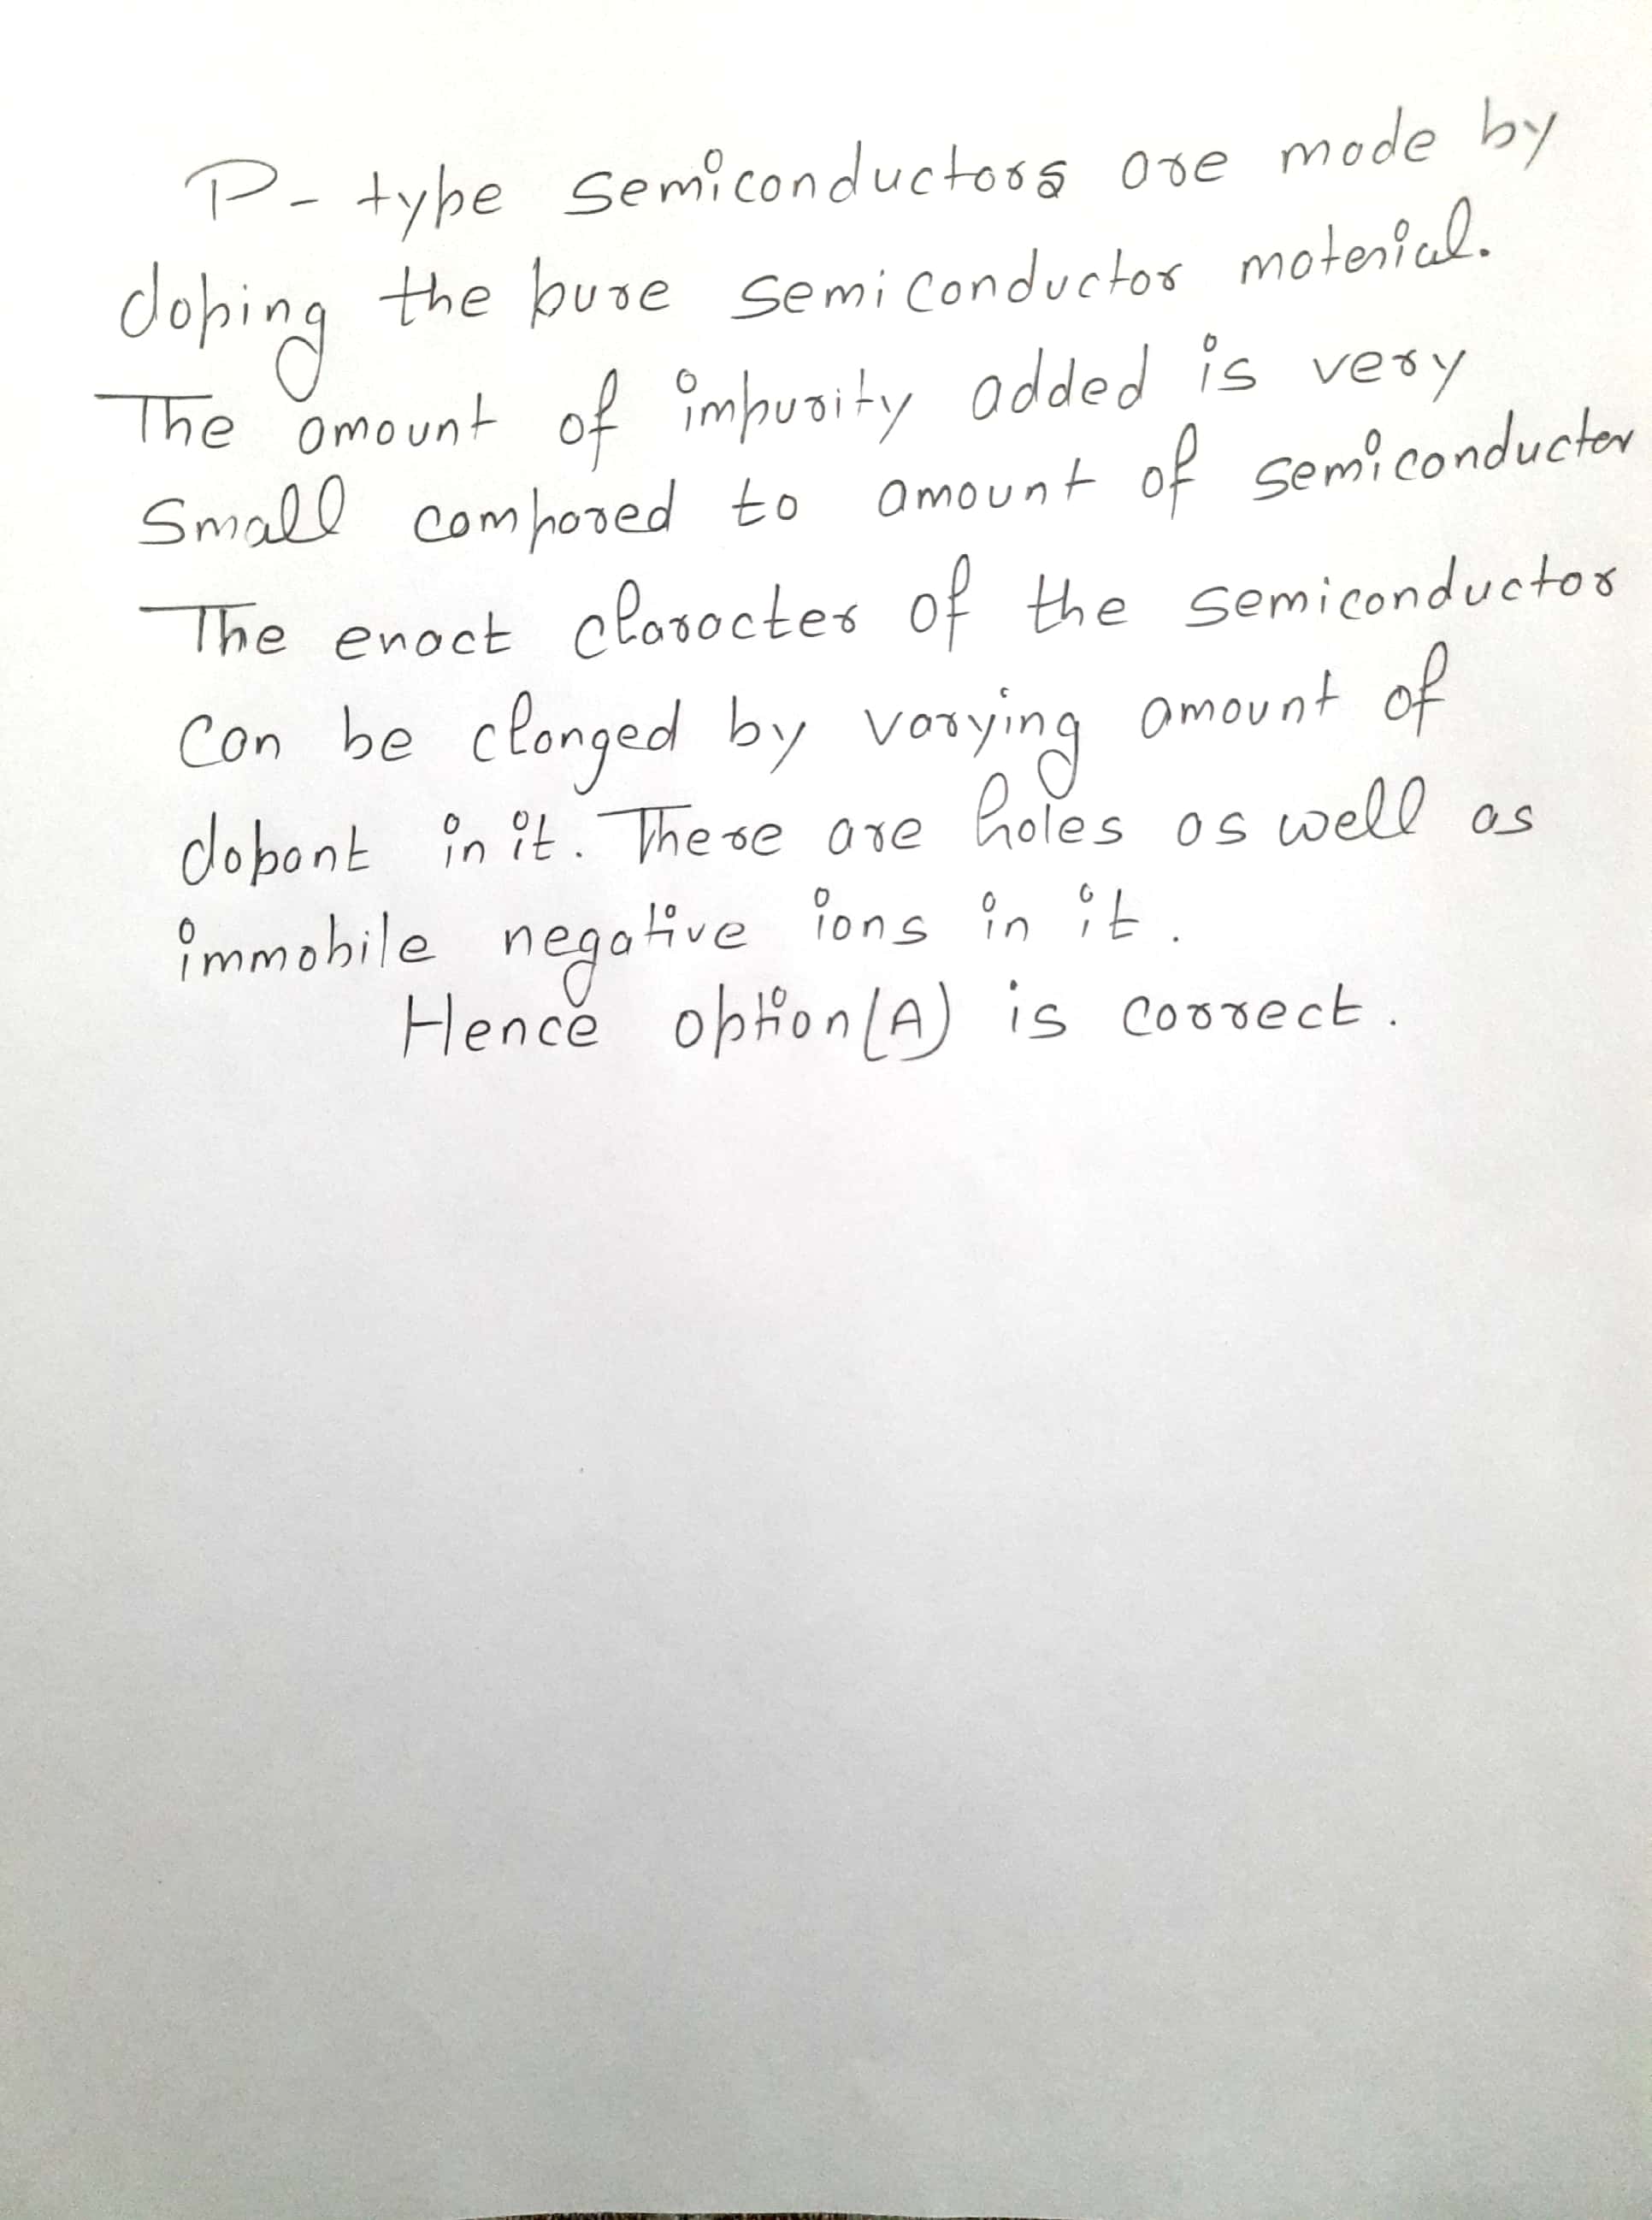 P- type semiconductors are made by
doping the pure semiconductor material.
The amount of impurity added is very
small compared to amount of semiconductor
The exact character of the semiconductor
can be changed by varying amount of
dopant in it. There are holes as well as
immobile negative ions in it.
Hence option (A) is correct.